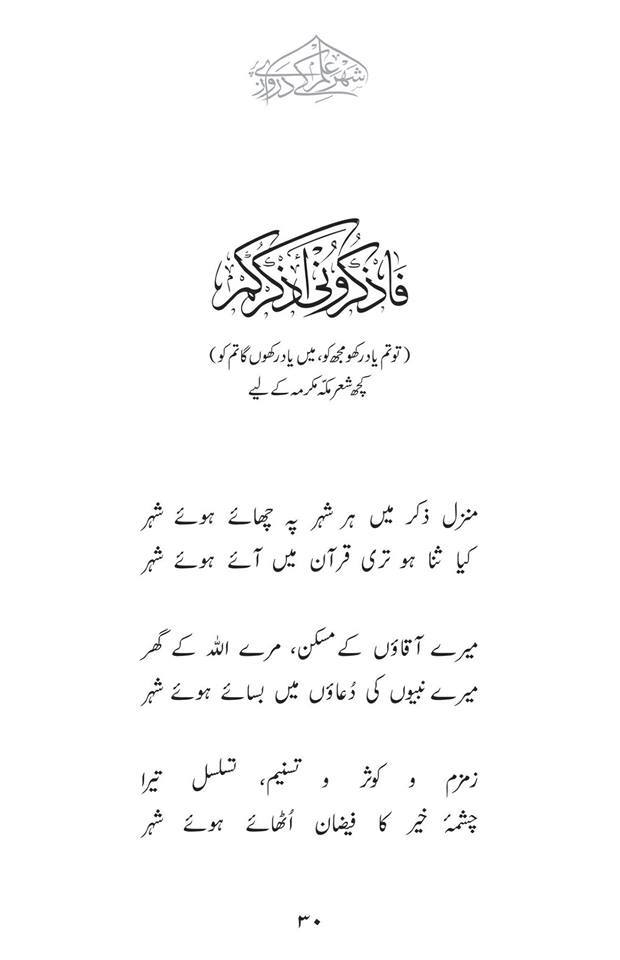 شہرِ علم کے دروازے پر
فَاذْكُرُونِي أَذْكُرْكُمْ
(تو تم یاد رکھو مجھ کو، میں یاد رکھوں گا تم کو)
کچھ شعر مکّہ مکرمہ کے لیے
منزل ذکر میں ہر شہر پہ چھائے ہوئے شہر
کیا ثنا ہو تری قرآن میں آئے ہوئے شہر
میرے آقاؤں کے مسکن، مرے اللہ کے گھر
میرے نبیوں کی دُعاؤں میں بسائے ہوئے شہر
زمزم و کوثر و تسنیم، تسلسل تیرا
چشمۂ خیر کا فیضان اُٹھائے ہوئے شہر
۳۰